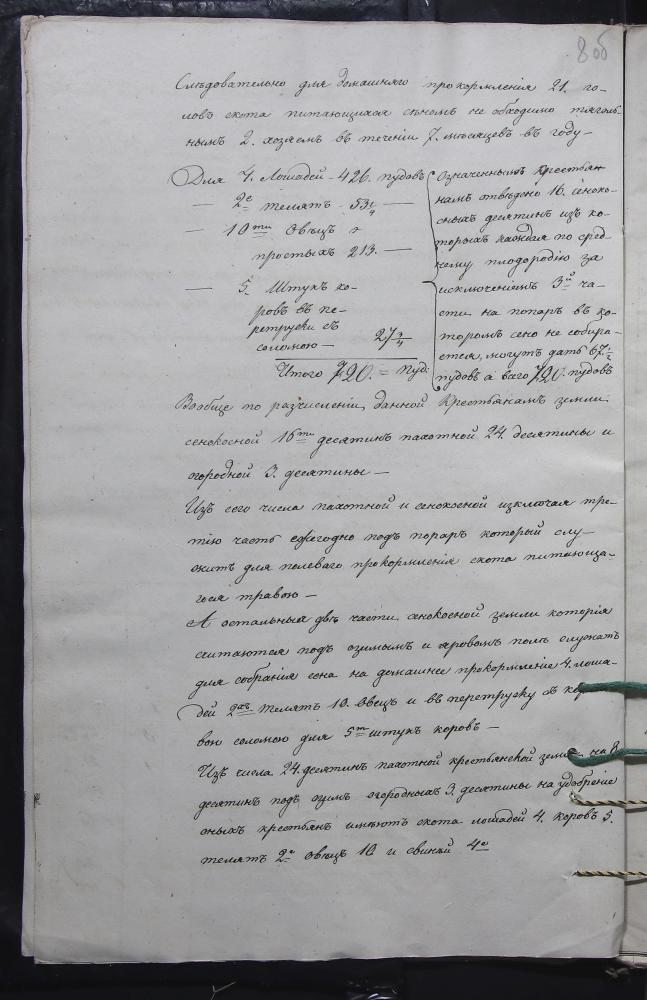 8 об
Слѣдовательно для домашняго прокормленія 21. го-
ловъ скота питающихся сѣномъ не обходимо тяголь-
нымъ 2. хозяемъ въ теченіи 7. мѣсяцевъ въ году —
Для 4. Лошадей - 426. пудовъ
— 2е телятъ - 53 1/4 —
— 10ти Овецъ
простыхъ 213. —
— 5. Штукъ ко-
ровъ въ пе-
ретруски съ
соломою — 27 3/4
Итого 720. = пуд:
Означеннымъ Крестьян-
намъ отведено 16. сѣноко-
сныхъ десятинъ изъ ко-
торыхъ каждая по сред-
нему плодородію за
исключеніемъ 3й ча-
сти на попаръ въ ко-
торомъ сено не собира-
ется, могутъ дать 67 1/2
пудовъ а всего 720. пудовъ
Вообще по разчисленіи данной Крестьянамъ земли
сенокосной 16ти десятинъ пахотной 24. десятины и
огородной 3. десятины —
Изъ сего числа пахотной и сенокосной изключая тре-
тію часть ежегодно подъ попаръ который слу-
житъ для полеваго прокормленія скота питающа-
гося травою —
А остальныя двѣ части сенокосной земли которія
считаются подъ озимымъ и яровомъ полѣ служатъ
для собранія сена на домашнее прокормленіе 4. лоша-
дей 2хъ телятъ 10. Овецъ и въ перетруску съ
вою соломою для 5ти штукъ коровъ —
Изъ числа 24. десятинъ пахотной крестьянской на 8.
десятинъ подъ озимъ огородныхъ 3. десятины на удобреніе
оныхъ крестьян имѣютъ скота лошадей 4. коровъ 5.
телятъ 2е Овецъ 10 и свиней 4е